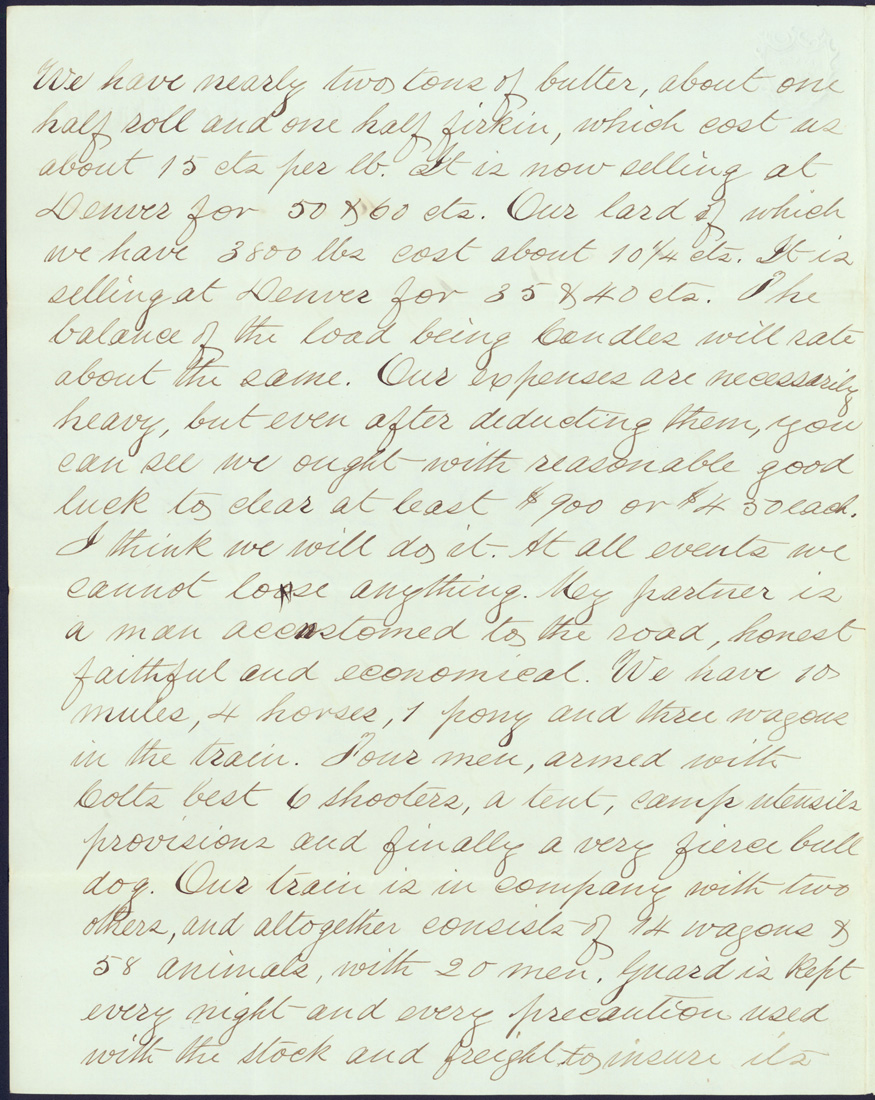 We have nearly two tons of butter, about one
half roll and one half firkin, which cost us
about 15 cts per lb. It is now selling at
Denver for 50 & 60 cts. Our lard of which
we have 3800 lbs cost about 10 1/4 cts. It is
selling at Denver for 35 & 40 cts. The
balance of the load being Candles will rate
about the same. Our expenses are necessarily
heavy, but even after deducting them, you
can see we ought with reasonable good
luck to clear at least $900 or $450 each.
I think we will do it. At all events we
cannot loose anything. My partner is
a man accustomed to the road, honest
faithful and economical. We have 10
mules, 4 horses, 1 pony and three wagons
in the train. Four men, armed with
Colts best 6 shooters, a tent, camp utensils
provisions and finally a very fierce bull
dog. Our train is in company with two
others, and altogether consists of 14 wagons &
58 animals, with 20 men. Guard is kept
every night and every precaution used
with the stock and freight to insure its